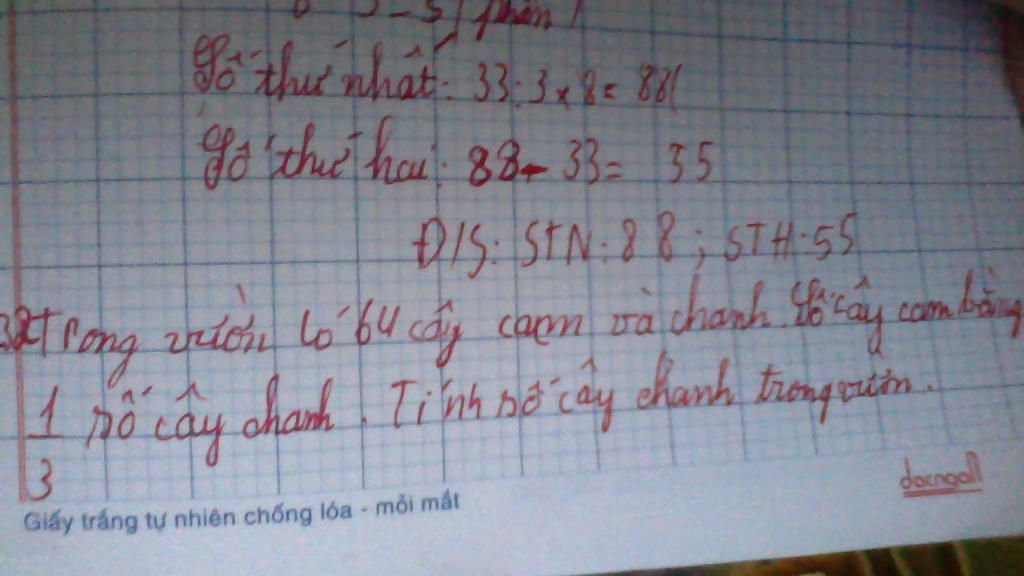 8 - 3 = 5 (phần)
Số thứ nhất: 33:3 x 8 = 88
Số thứ hai: 88 - 33 = 55
Đ/S: STN: 88 ; STH: 55
32 Trong vườn có 64 cây cam và chanh. Số cây cam bằng
1 số cây chanh. Tính số cây chanh trong vườn.
3
docngall
Giấy trắng tự nhiên chống lóa - mỏi mắt